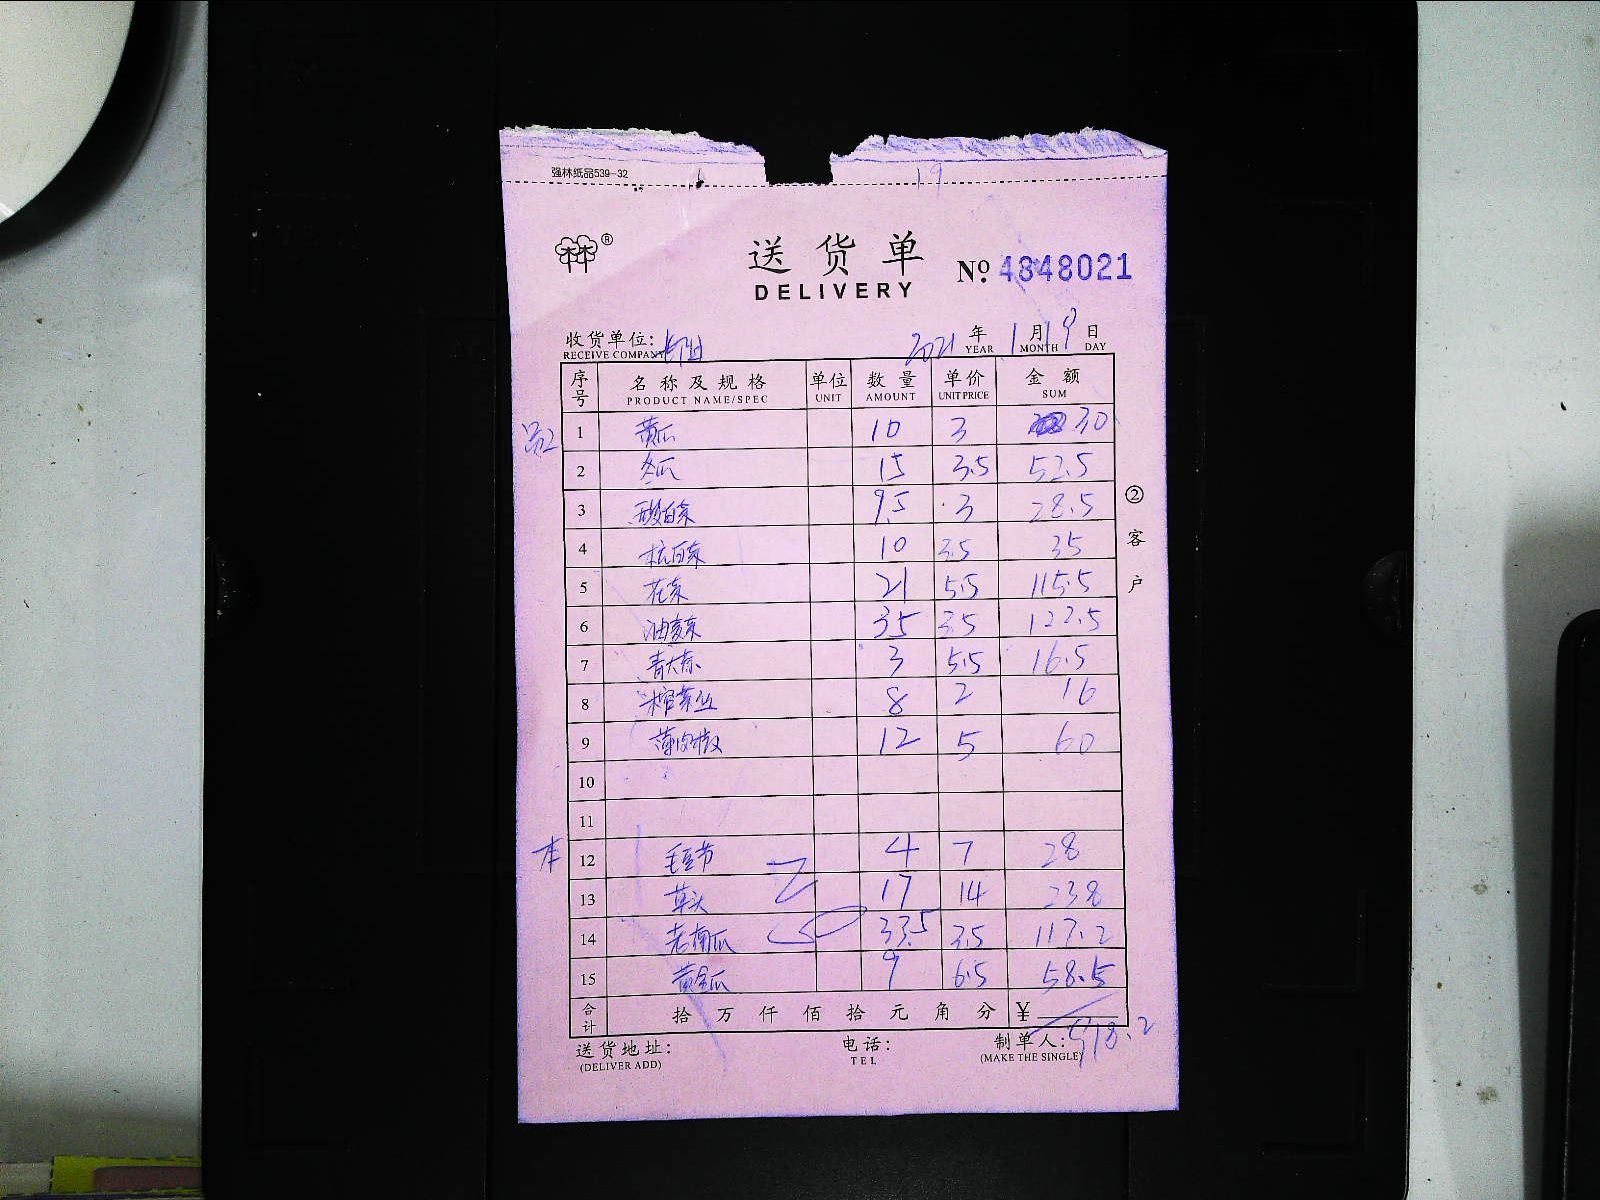 强林纸品539-32
19
林林®
送货单
DELIVERY
№ 4848021
收货单位:
RECEIVE COMPANY
2021 年 1 月 19 日
YEAR MONTH DAY
序号 名称及规格 单位 数量 单价 金额
PRODUCT NAME/SPEC UNIT AMOUNT UNIT PRICE SUM
1 黄瓜 10 3 30
2 冬瓜 15 3.5 52.5
3 9.5 3 28.5
4 杭白菜 10 3.5 35
5 花菜 21 5.5 115.5
6 油麦菜 35 3.5 122.5
7 青大椒 3 5.5 16.5
8 榨菜丝 8 2 16
9 薄肉椒 12 5 60
10
11
本 12 毛豆节 4 7 28
13 草头 17 14 238
14 老南瓜 33.5 3.5 117.2
15 黄金瓜 9 6.5 58.5
合计 拾 万 仟 佰 拾 元 角 分 ¥ 918.2
②客户
送货地址: 电话: 制单人:
(DELIVER ADD) TEL (MAKE THE SINGLE)